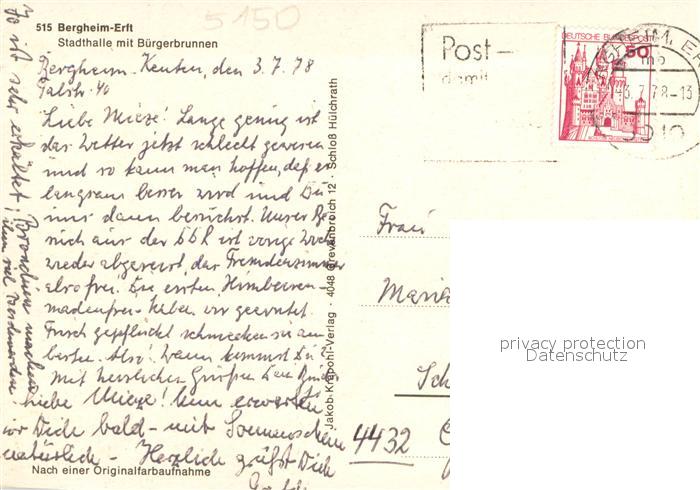 5150
515 Bergheim-Erft
Stadthalle mit Bürgerbrunnen
Bergheim-Kenten, den 3.7.78
Talstr. 40
Liebe Mieze! Lange genug ist
das Wetter jetzt schlecht gewesen
und so kann man hoffen, daß es
langsam besser wird und Du
uns dann besuchst. Unser Be-
such aus der DDR ist vorige Woche
wieder abgereist, das Fremdenzimmer
also frei. Die ersten Himbeeren -
madenfrei - haben wir geerntet.
Frisch gepflückt schmecken sie am
besten. Also! Wann kommst Du?
Mit herzlichen Grüßen Dein Bruder
Liebe Mieze! Nun erwarten
wir Dich bald - mit Sonnenschein
natürlich - Herzlich grüßt Dich
Jo ist sehr erkältet, Bronchien machen
ihm viel Beschwerden
Nach einer Originalfarbaufnahme
Jakob Krapohl-Verlag · 4048 Grevenbroich 12 · Schloß Hülchrath
Post-
damit
DEUTSCHE BUNDESPOST
50
BERGHEIM, ER
mb
-3.7.78-13
5010
Frau
Maria
Sch
4432
privacy protection
Datenschutz